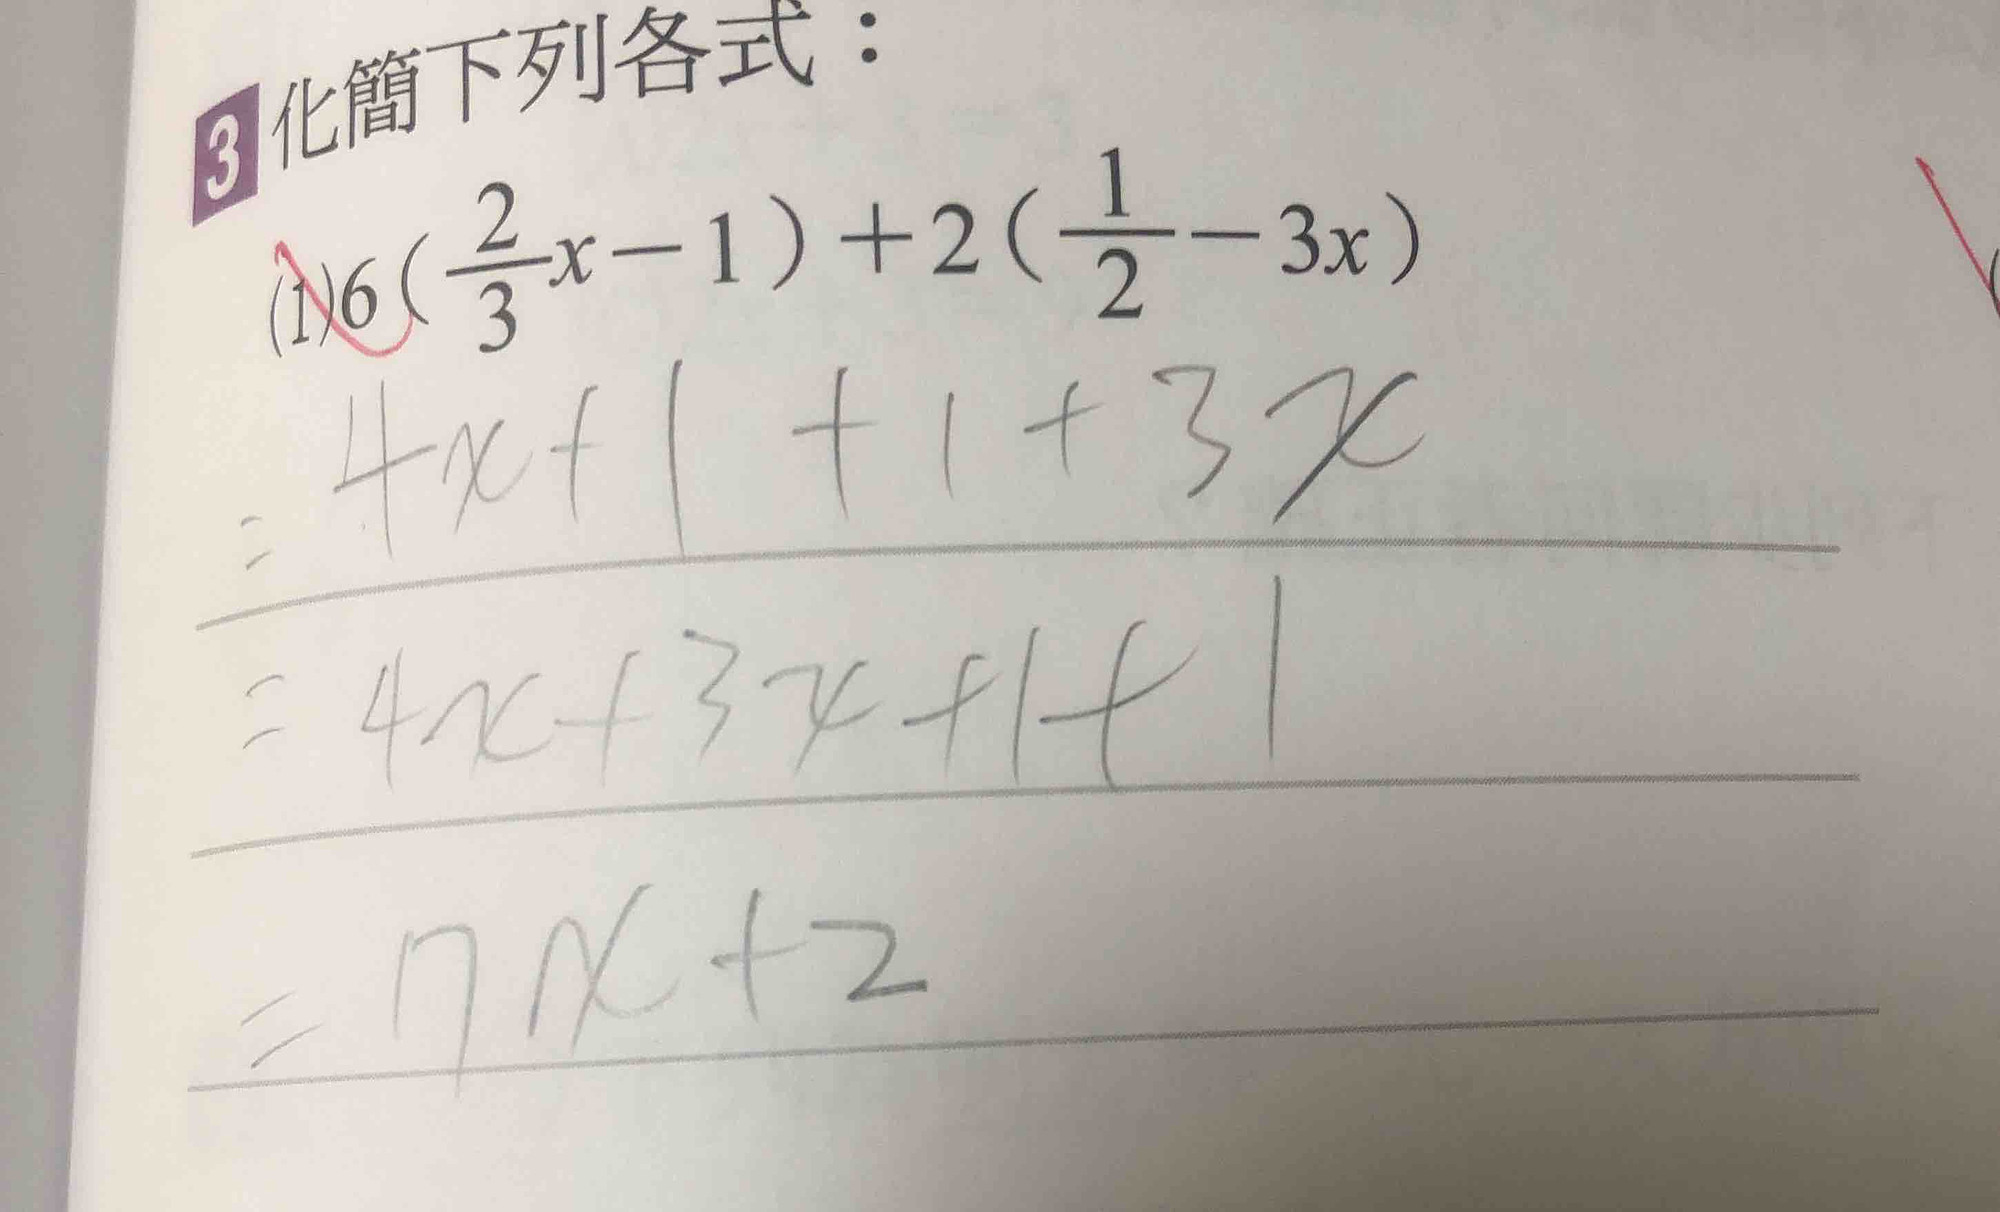 3 化簡下列各式：
(1) 6(2/3x－1)＋2(1/2－3x)
= 4x+1+1+3x
= 4x+3x+1+1
= 7x+2